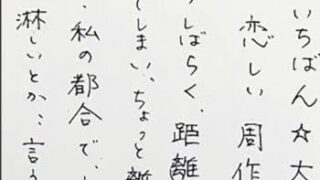 いちばん☆大
恋しい周作
しばらく、距離
てしまい、ちょっと
、私の都合で、
淋しいとか、言う